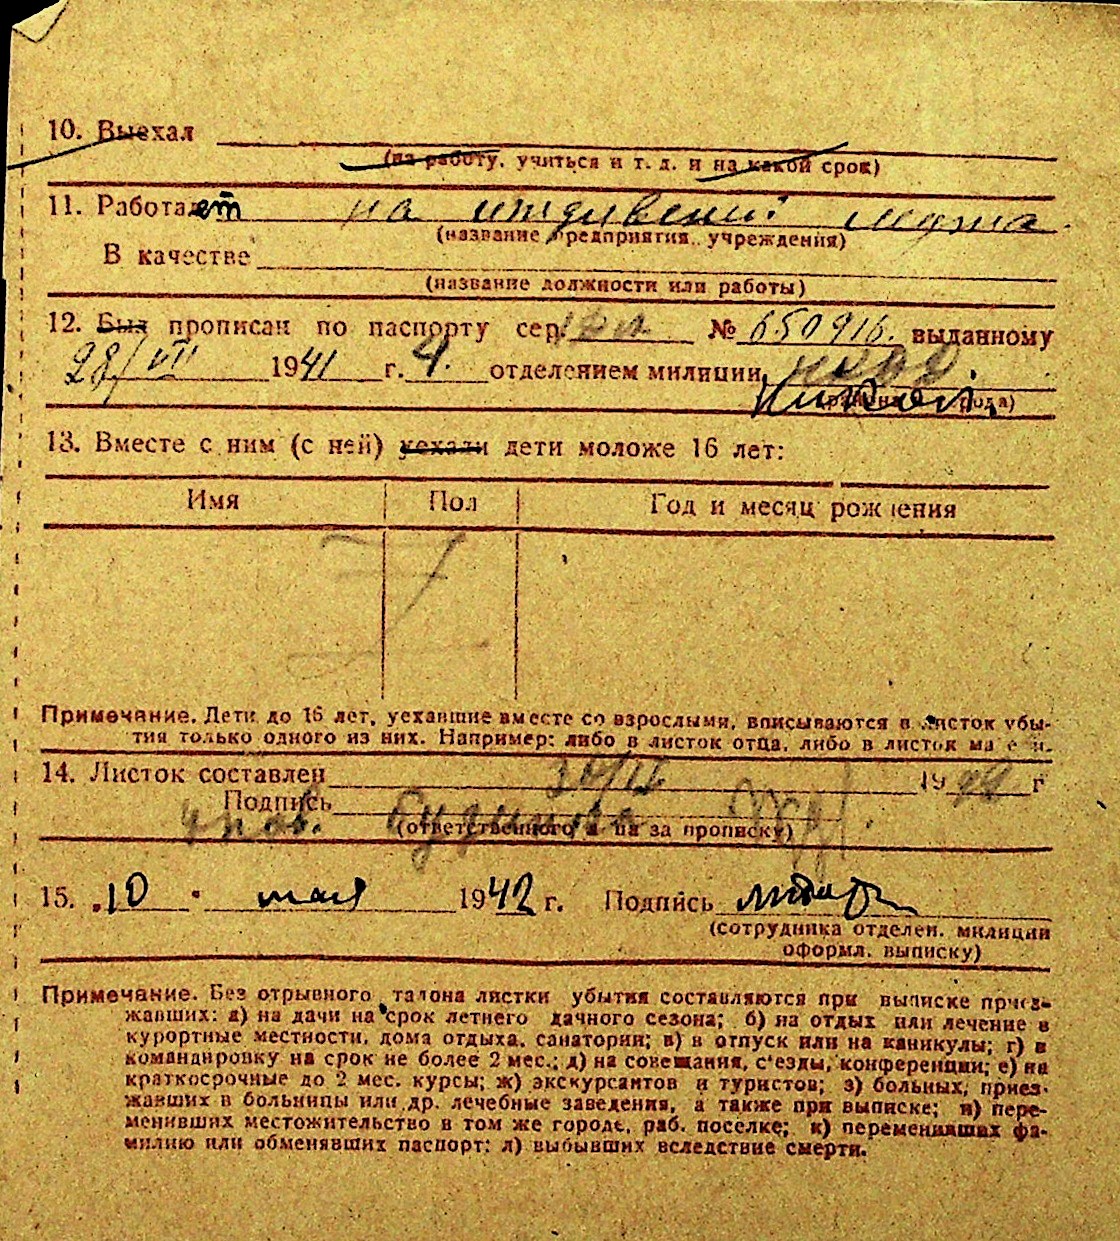 10. Выехал
(на работу, учиться и т. д. и на какой срок)
11. Работает на иждивении мужа
(название предприятия, учреждения)
В качестве
(название должности или работы)
12. Был прописан по паспорту сер. № 650916. выданному
28/VII 1941 г. 4. отделением милиции,
13. Вместе с ним (с ней) уехали дети моложе 16 лет:
Имя Пол Год и месяц рождения
Примечание. Дети до 16 лет, уехавшие вместе со взрослыми, вписываются в листок убы-
тия только одного из них. Например: либо в листок отца, либо в листок матери.
14. Листок составлен 1942 г
Подпись
(ответственного за прописку)
15. 10 мая 1942 г. Подпись
(сотрудника отделен. милиции
оформл. выписку)
Примечание. Без отрывного талона листки убытия составляются при выписке приез-
жавших: а) на дачи на срок летнего дачного сезона; б) на отдых или лечение в
курортные местности, дома отдыха, санатории; в) в отпуск или на каникулы; г) в
командировку на срок не более 2 мес.; д) на совещания, с'езды, конференции; е) на
краткосрочные до 2 мес. курсы; ж) экскурсантов и туристов; з) больных, приез-
жавших в больницы или др. лечебные заведения, а также при выписке; и) пере-
менивших местожительство в том же городе, раб. поселке; к) переменивших фа-
милию или обменявших паспорт; л) выбывших вследствие смерти.